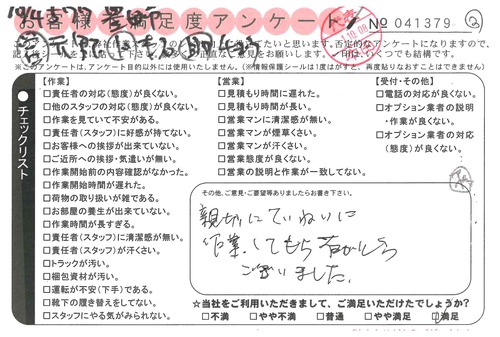 お客様満足度アンケート
No 041379
※このアンケートは、アンケート目的以外には使用いたしません。(※情報保護シールは1度がすと、再度貼りなおすことはできません)
チェックリスト
【作業】
□責任者の対応(態度)が良くない。
□他のスタッフの対応(態度)が良くない。
□作業を見ていて不安がある。
□責任者(スタッフ)に好感が持てない。
□お客様への挨拶が出来ていない。
□ご近所への挨拶・気遣いが無い。
□作業開始前の内容確認がなかった。
□作業開始時間が遅れた。
□荷物の取り扱いが雑である。
□お部屋の養生が出来ていない。
□作業時間が長すぎる。
□責任者(スタッフ)に清潔感が無い。
□責任者(スタッフ)が汗くさい。
□トラックが汚い。
□梱包資材が汚い。
□運転が不安(下手)である。
□靴下の履き替えをしてない。
□スタッフにやる気がみられない。
【営業】
□見積もり時間に遅れた。
□見積もり時間が長い。
□営業マンに清潔感が無い。
□営業マンが煙草くさい。
□営業マンが汗くさい。
□営業態度が良くない。
□営業の説明と作業が一致してない。
【受付・その他】
□電話の対応が良くない。
□オプション業者の説明・作業が良くない。
□オプション業者の対応(態度)が良くない。
その他、ご意見・ご要望等ありましたらお書き下さい。
親切にていねいに
作業してもらいありがとう
ございました。
☆当社をご利用いただきまして、ご満足いただけたでしょうか？
□不満 □やや不満 □普通 □やや満足 □満足